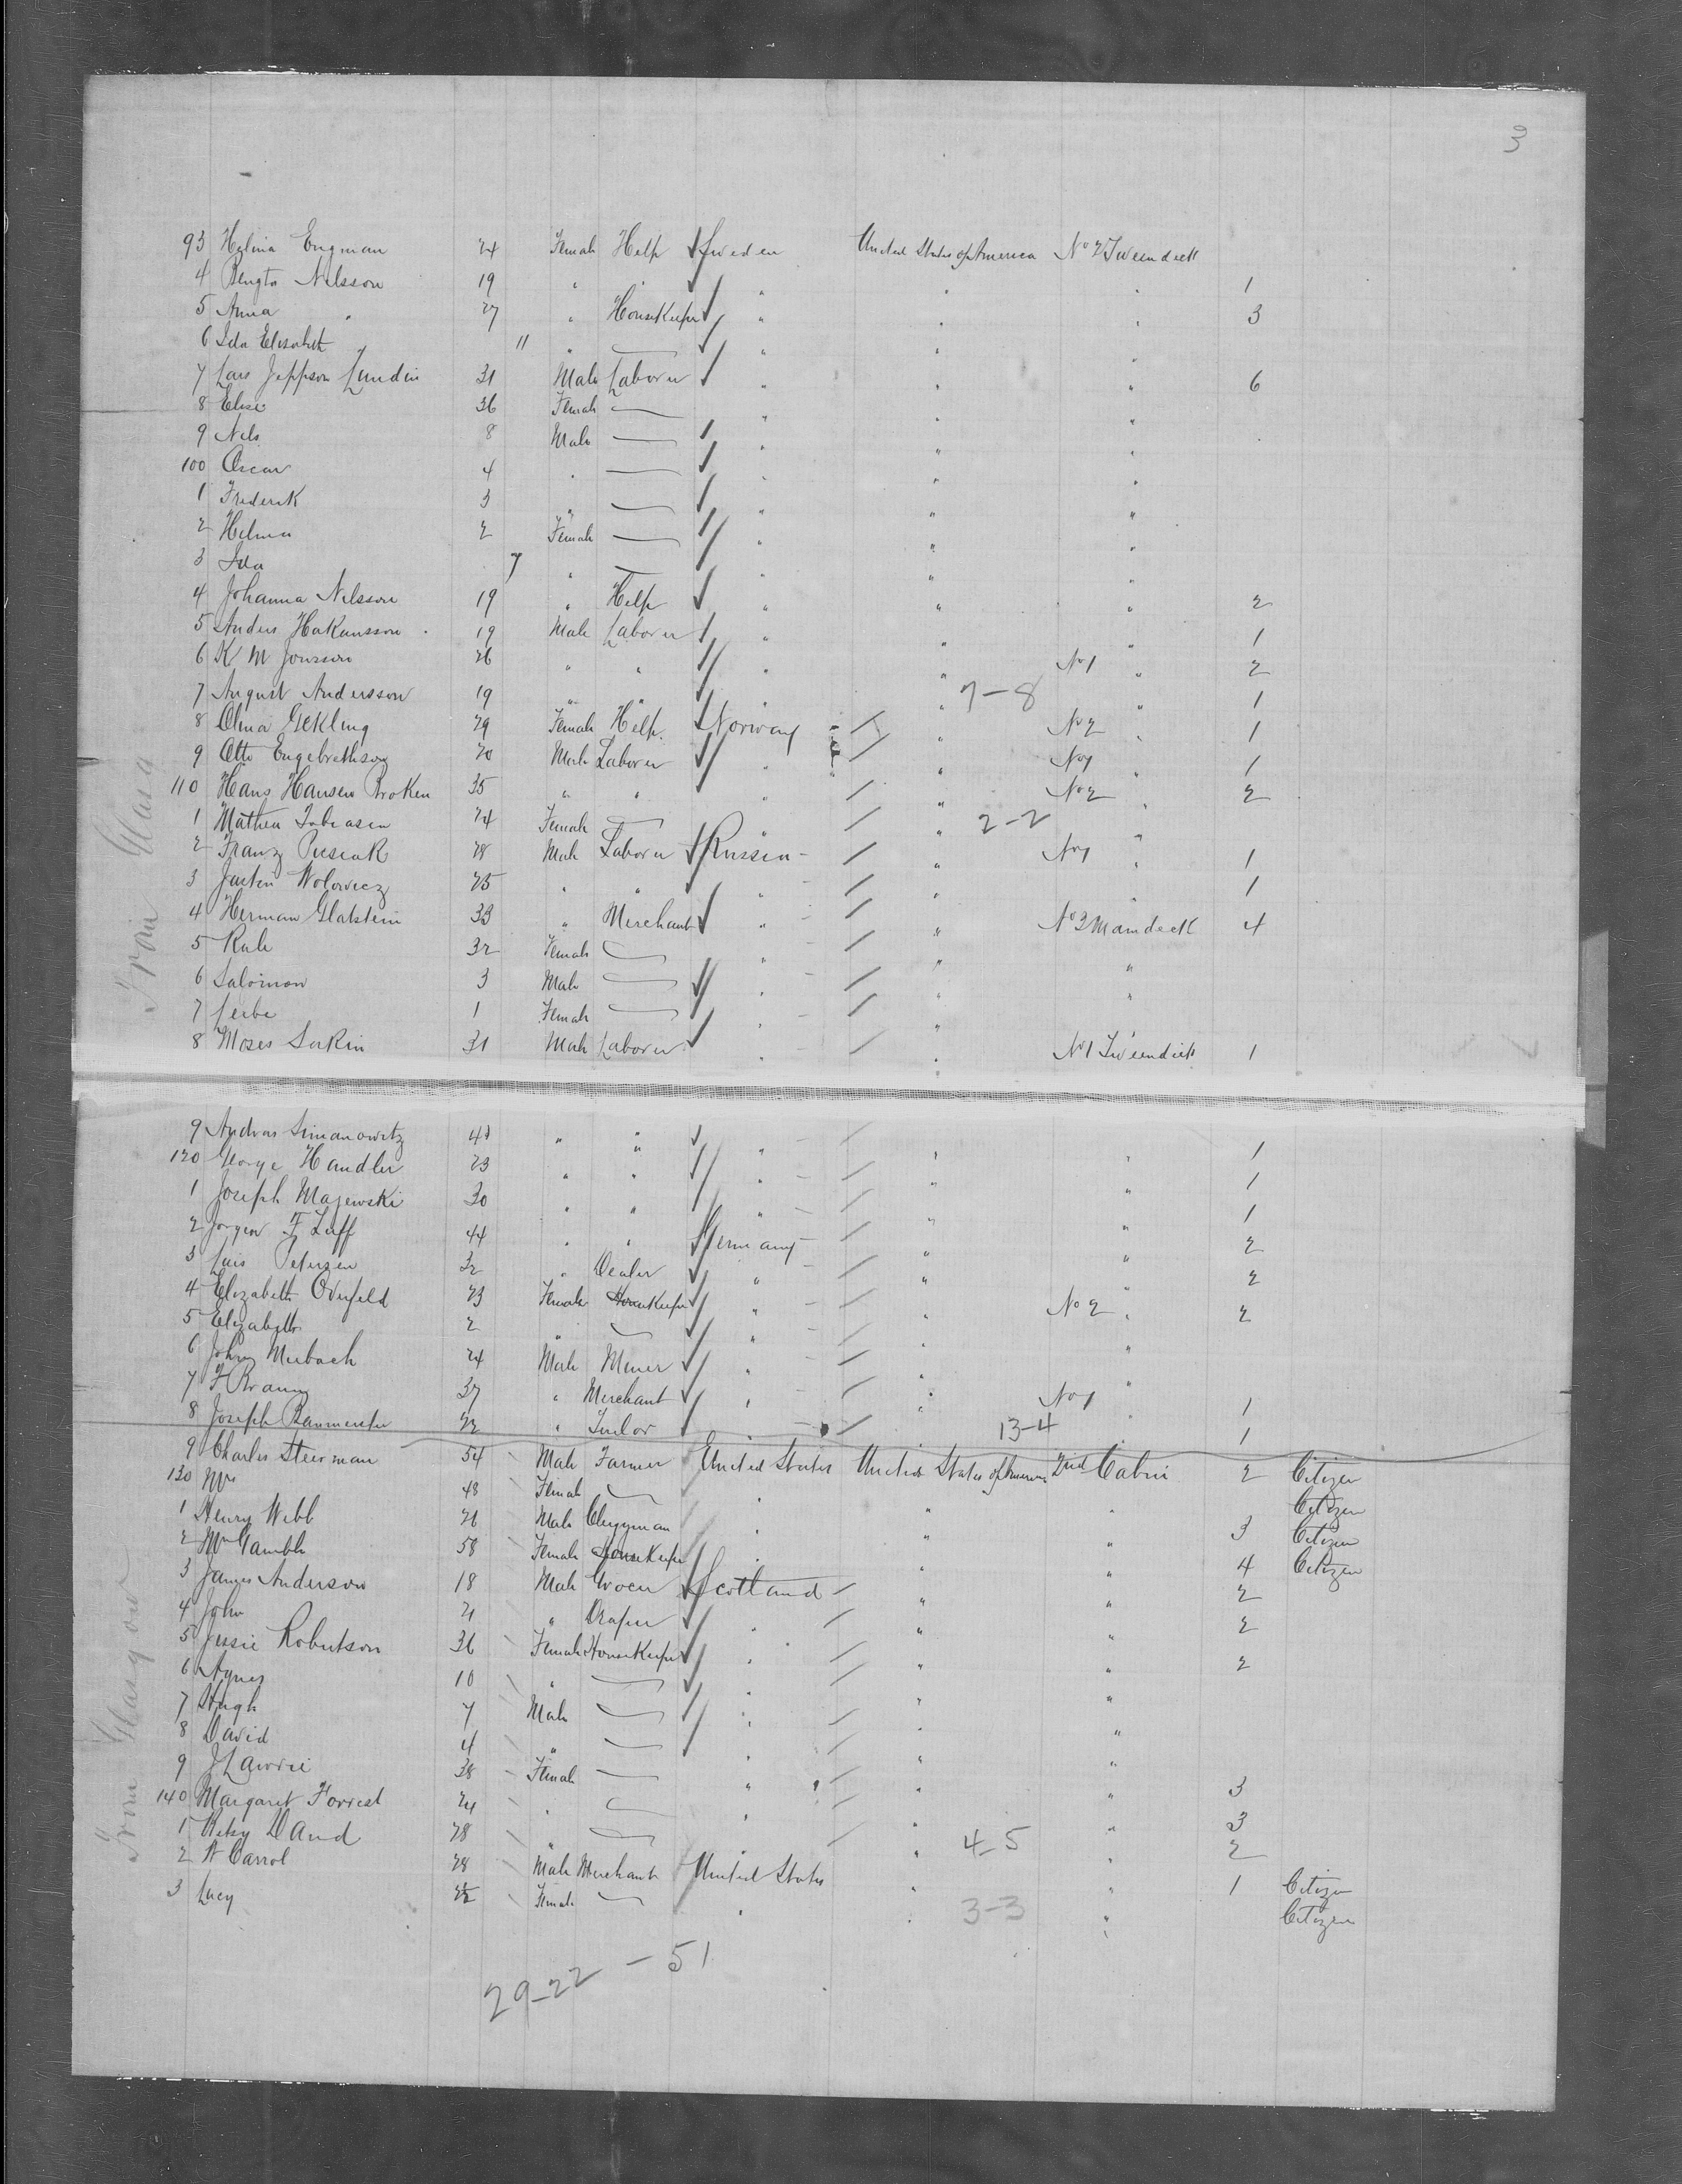 3
93 Helina Engman 24 Female Help Sweden United States of America No 2 Tweendeck
4 Bengta Nilsson 19 " " " " " 1
5 Anna " 27 " HouseKeeper " " " 3
6 Ida Elisabeth " 11 " — " " "
7 Lars Jeppson Lundin 31 Male Laborer " " " 6
8 Elise 36 Female — " " "
9 Nils 8 Male — " " "
100 Oscar 4 " — " " "
1 Frederik 3 " — " " "
2 Helma 2 Female — " " "
3 Ida 7 " — " " "
4 Johanna Nilsson 19 " Help " " " 2
5 Anders Hakansson 19 Male Laborer " " " 1
6 K M Jonsson 26 " " " " No 1 " 2
7 August Andersson 19 " " " " " 1
7-8
8 Olina Gekling 29 Female Help Norway " No 2 " 1
9 Otto Engebrethson 20 Male Laborer " " No 1 " 1
110 Hans Hansen Broken 35 " " " " No 2 " 2
1 Mathea Tobiasen 24 Female — " " "
2-2
2 Franz Piesiak 28 Male Laborer Russia " No 1 " 1
3 Justin Wolowicz 25 " " " " " 1
4 Herman Glatstein 33 " Merchant " " No 3 Maindeck 4
5 Rule 32 Female — " " "
6 Salomon 3 Male — " " "
7 Leibe 1 Female — " "
8 Moses Sorkin 31 Male Laborer " " No 1 Tweendeck 1
From Glasa
9 Andras Simanowitz 41 " " " " " 1
120 George Handler 23 " " " " " 1
1 Joseph Majewski 30 " " " " " 1
2 Jorgen F Luff 44 " " Germany " " 2
3 Lars Petersen 32 " Dealer " " " 2
4 Elizabeth Overfeld 23 Female HouseKeeper " " No 2 " 2
5 Elizabeth 2 " — " " "
6 John Meibach 24 Male Miner " " "
7 F Braun 37 " Merchant " " No 1 1
8 Joseph Baumeister 22 " Tailor " " " 1
13-4
9 Charles Steerman 54 Male Farmer United States United States of America 2nd Cabin 2 Citizen
130 Mrs 48 Female — " " " Citizen
1 Henry Webb 21 Male Clergyman " " " 3 Citizen
2 Mrs Gamble 58 Female HouseKeeper " " " 4 Citizen
3 James Anderson 18 Male Grocer Scotland " " 2
4 John 21 " Draper " " " 2
5 Jessie Robertson 36 Female HouseKeeper " " " 2
6 Agnes 10 " — " " "
7 Hugh 7 Male — " " "
8 David 4 " — " " "
9 J Lawrie 38 Female — " " " 3
140 Margaret Forrest 24 " — " " " 3
1 Betsy David 28 " — " " " 2
4-5
2 A Carrol 28 Male Merchant United States " " 1 Citizen
3 Lucy 22 Female — " " " Citizen
3-3
From Glasgow
29-22 - 51